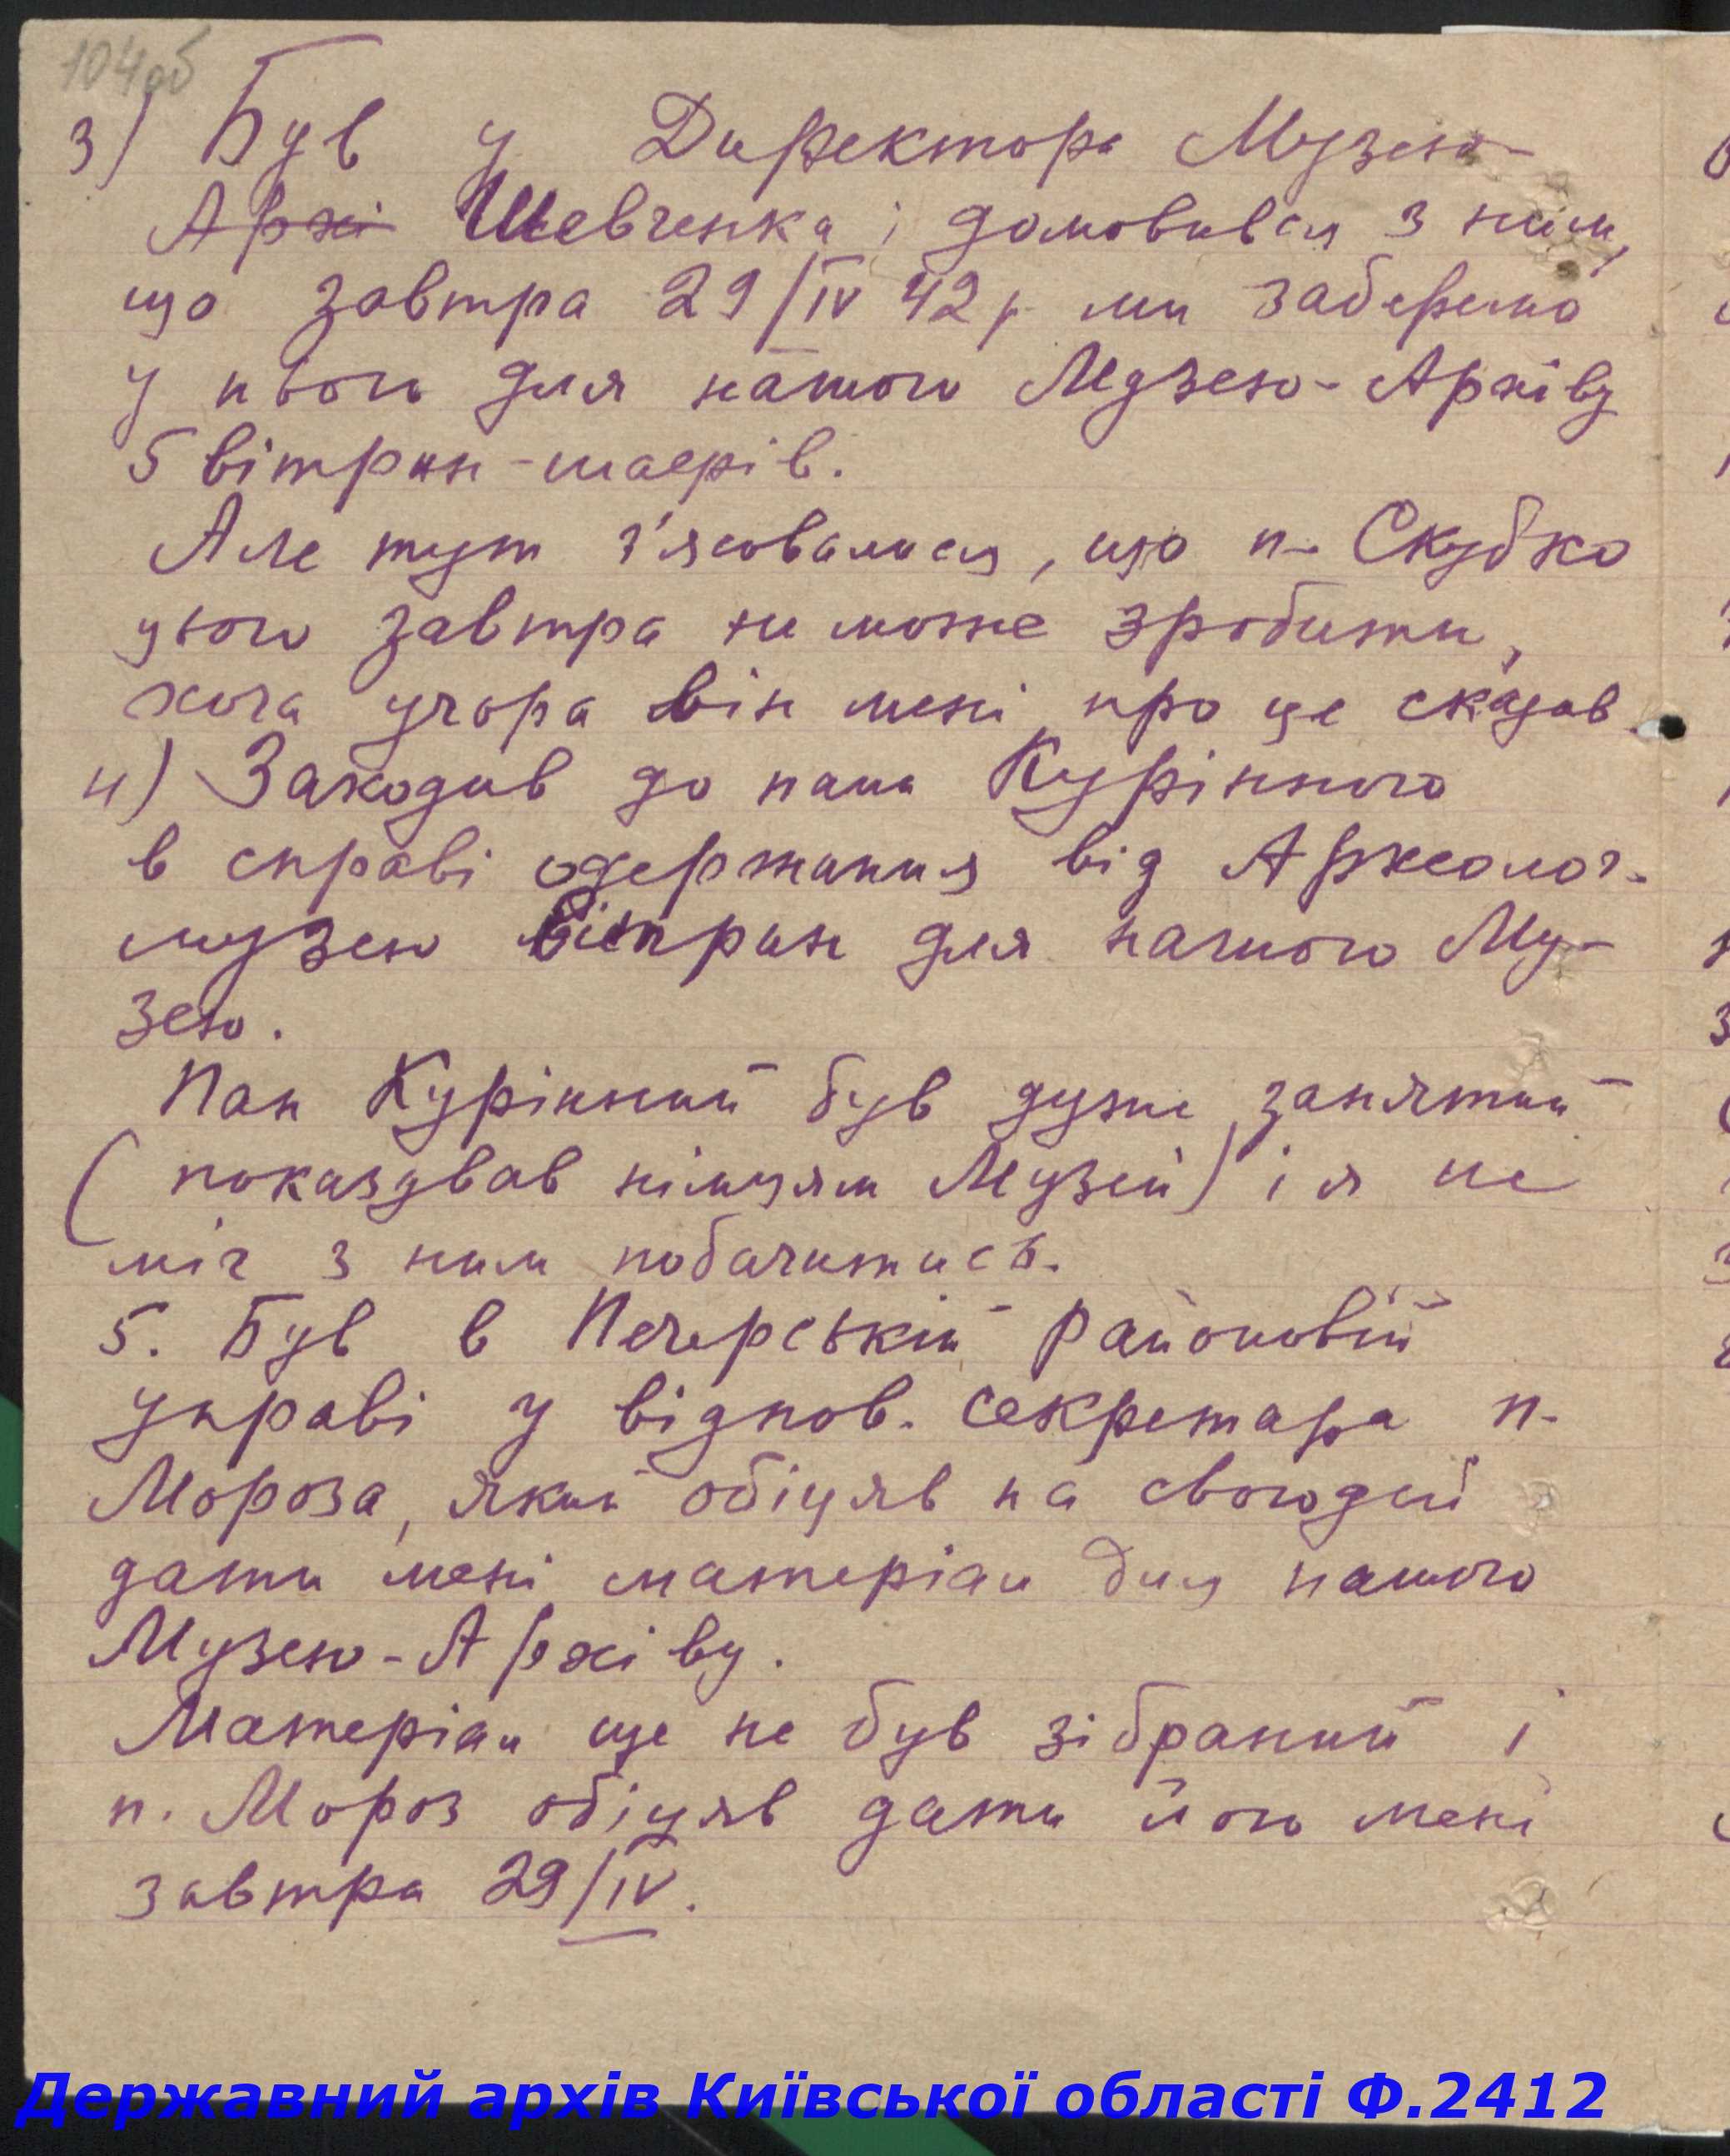 104об
3) Був у Директора Музею-
Архі Шевченка і домовився з ним,
що завтра 29/IV 42 р. ми заберемо
у нього для нашого Музею-Архіву
5 вітрин-шаерів.
Але тут з'ясовалися, що п. Скубко
цього завтра не може зробити,
хоча учора він мені про це сказав.
4) Заходив до пана Курінного
в справі одержання від Археолог.
музею вітрин для нашого Му-
зею.
Пан Курінний був дуже занятий
(показував німцям Музей) і я не
міг з ним побачитись.
5. Був в Печерській Районовій
управі у відпов. секретара п.
Мороза, який обіцяв на свогодні
дати мені матеріал для нашого
Музею-Архіву.
Матеріал ще не був зібраний і
п. Мороз обіцяв дати його мені
завтра 29/IV.
Державний архів Київської області Ф.2412